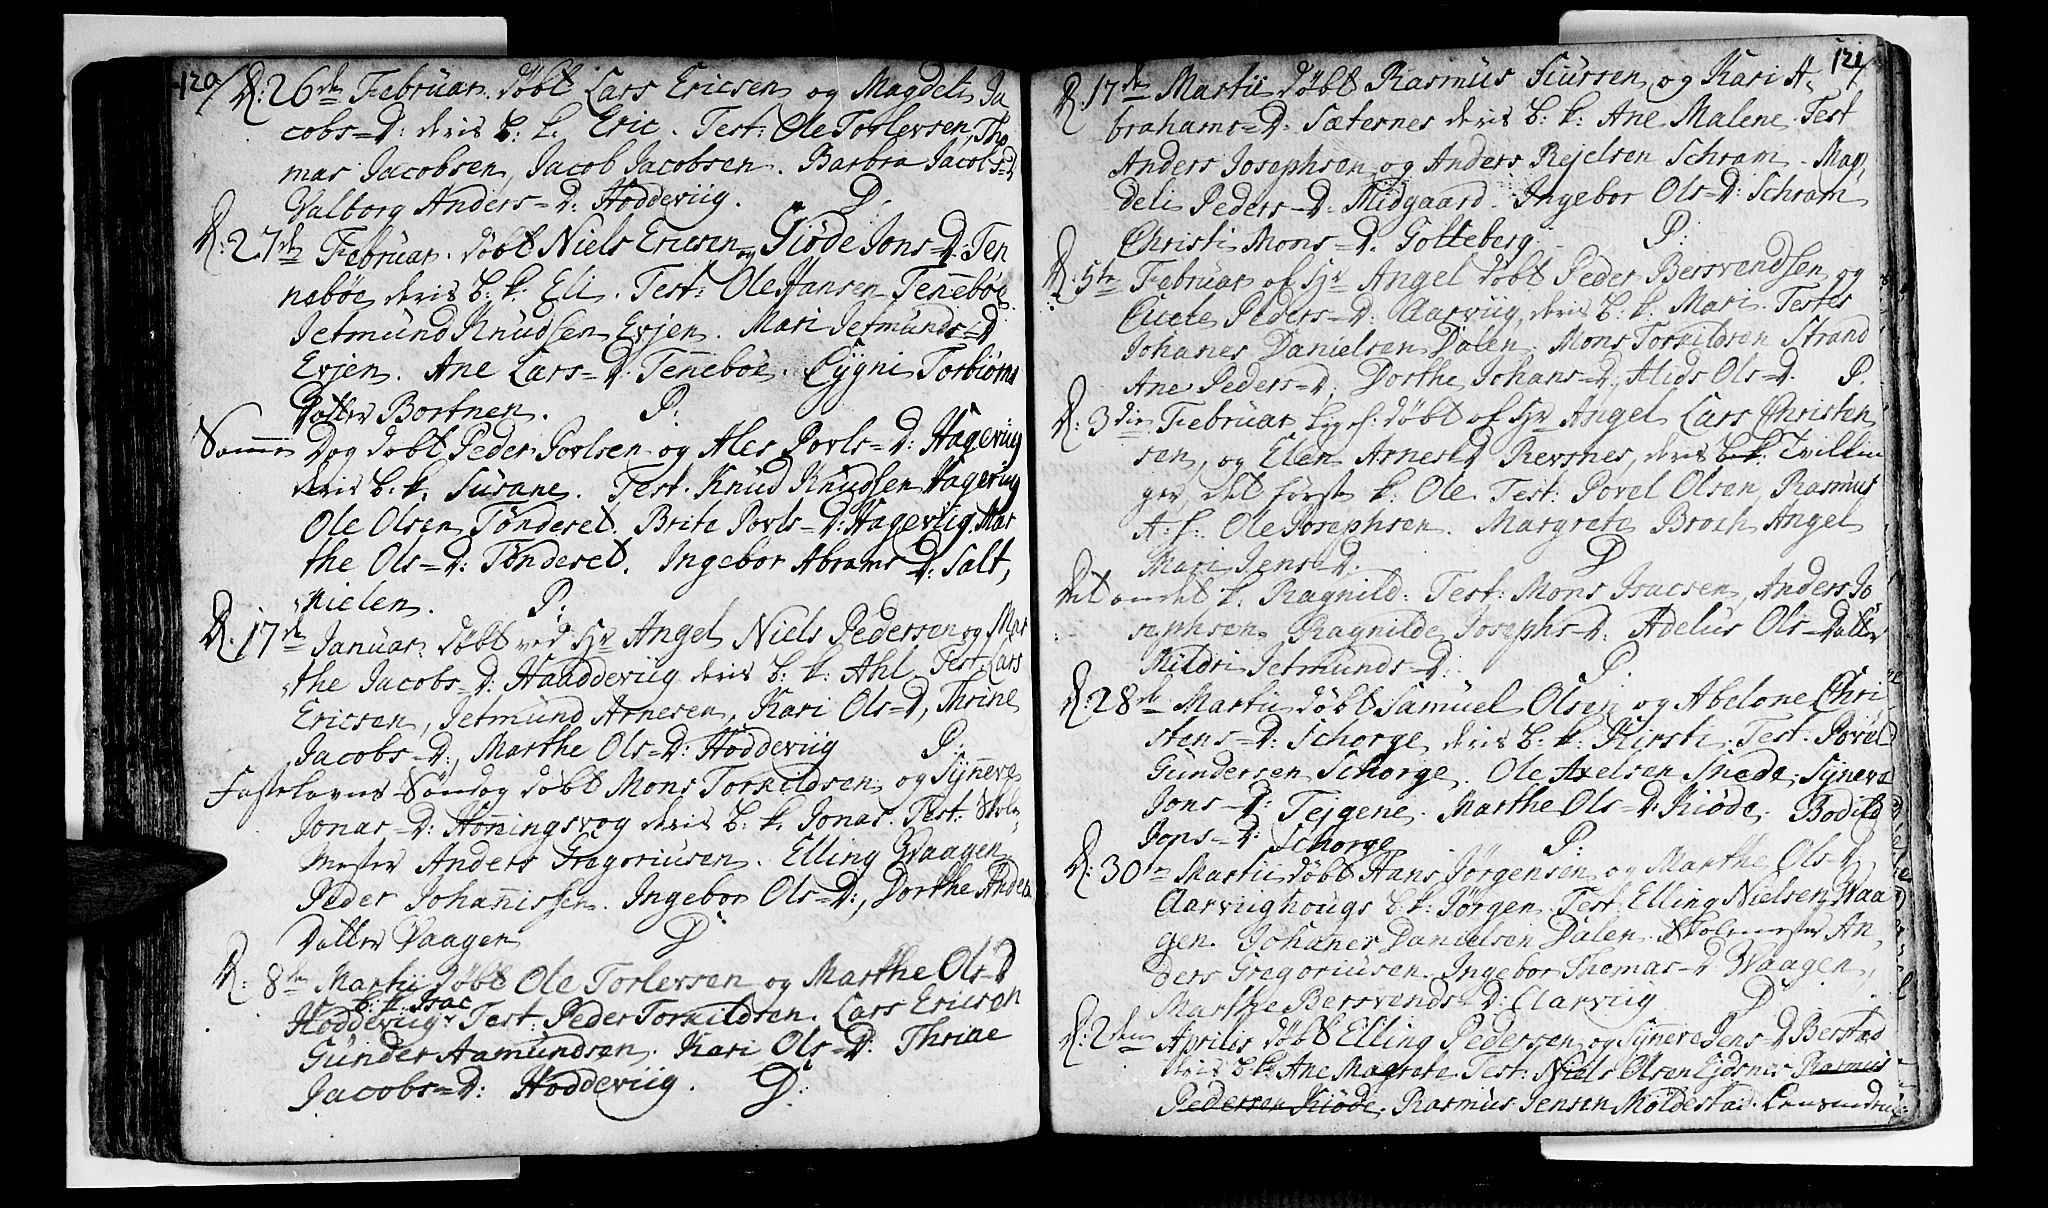 120/ D: 26de Februar. döbt Lars Ericsen og Magdeli Ja
cobs=D: deris b: k: Eric. Test: Ole Torlevsen, Tho
mas Jacobsen, Jacob Jacobsen. Barbra Jacobs=D
Valborg Anders=D: Hoddeviig. P.
D: 27de Februar. döbt Niels Ericsen og Giöde Jons=D: Ten
neböe deris b: k: Eli. Test: Ole Hansen Tenneböe
Jetmund Knudsen Evjen. Mari Jetmunds=D
Evjen. Ane Lars=D: Tenneböe. Cygni Torbiörns
Datter Bortnen. P:
Samme Dag döbt Peder Povlsen og Ales Povls=D: Hageviig
deris b: k: Susane. Test: Knud Knudsen Hageviig
Ole Olsen Tönderet. Brite Povls=D: Hageviig. Mar
the Ols=D: Tönderet. Ingebor Abrams=D: Salt,
kielen. P:
D: 17de Januar: döbt ved Hr Angel Niels Pedersen og Mar
the Jacobs=D: Haaddeviig deris b: k: Ahl. Test: Lars
Ericsen, Jetmund Arnesen, Kari Ols=D, Thrine
Jacobs=D:, Marthe Ols=D: Hoddeviig P:
Fastelavns Söndag döbt Mons Torkildsen og Synneve
Jonas=D: Honningsvog deris b: k: Jonas. Test: Skole,
mester Anders Gregoriusen. Elling Vaagen
Peder Johannissen. Ingebor Ols=D:, Dorthe Anders
Datter Vaagen P
D: 8de Martii döbt Ole Torlevsen og Marthe Ols=D
b: k: Isac
Hoddeviig. Test: Peder Torkildsen. Lars Ericsen
Gunder Aamundsen. Kari Ols=D: Thrine
Jacobs=D: Hoddeviig. P:
121/
D. 17de Martii döbt Rasmus Siursen og Kari A,
brahams=D: Sæternes deris b: k: Ane Malene. Test
Anders Josephsen og Anders Rejelsen Schram. Mag,
deli Peders=D: Midgaard. Ingebor Ols=D: Schram
Christi Mons=D. Gotteberg. P:
D. 5te Februar af Hr Angel döbt Peder Bersvendsen og
Peders=D: Aarviig, deris b: k: Mari. Testes
Johanes Danielsen Dalen. Mons Torkildsen Strand
Ane Peders=D, Dorthe Johans=D, Alids Ols=D. P.
D: 3die Februar döbt af Hr Angel Lars Christen
sen, og Elen Arnes=D Revsnes, deris b: k: Tvillin
ger, det förste k: Ole. Test: Povel Olsen, Rasmus
A: s: Ole Josephsen. Margrete Broch Angel
Mari Jens=D. P
Det andet k: Ragnild. Test: Mons Isacsen, Anders Jo
sephsen. Ragnilde Josephs=D: Adelus Ols=Datter
Kildri Jetmunds=D: P.
D: 28de Martii döbt Samuel Olsen og Abelone Chri
stens=D: Schorge deris b: k: Kirsti. Test. Povel
Gundersen Schorge. Ole Axelsen Snede, Synneve
Jons=D: Tejgene. Marthe Ols=D: Kiöde. Bodild
Jons=D: Schorge P:
D: 30te Martii döbt Hans Jörgensen og Marthe Ols=D
Aarviighougs b: k: Jörgen. Test Elling Nielsen Vaa
gen. Johanes Danielsen Dalen. Skolemester An,
ders Gregoriusen. Ingebor Thomas=D: Vaagen,
Marthe Bersvends=D: Aarviig P
D: 2den Aprilis döbt Elling Pedersen og Synneve Jens=D Berstad
deris b: k: Ane Magrete. Test: Niels Olsen Ejdsnes Rasmus
Pedersen Kiöde. Rasmus Jensen Moldestad.